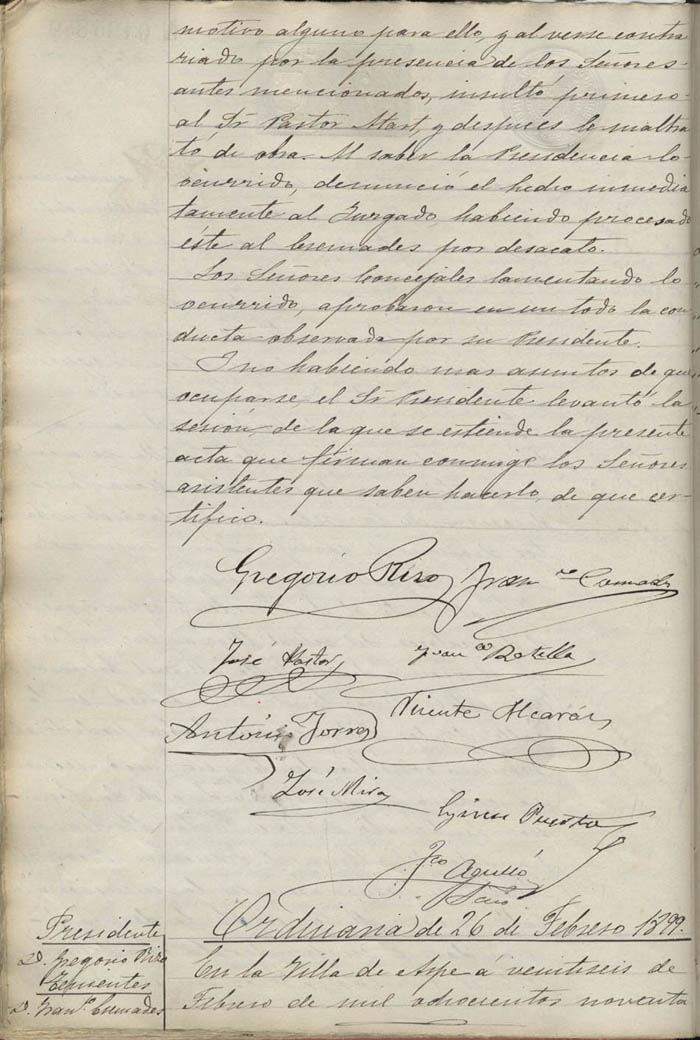 motivo alguno para ello, y al verse contra
riado por la presencia de los Señores
antes mencionados, insultó primero
al Sr Pastor Mart, y despues le maltra
tó de obra. Al saber la Presidencia lo
ocurrido, denunció el hecho inmedia
tamente al Juzgado, habiendo procesado
éste al Cremades por desacato.
Los Señores Concejales lamentando lo
ocurrido, aprobaron en un todo la con
ducta observada por su Presidente.
I no habiendo mas asuntos de que
ocuparse el Sr Presidente levantó la
sesión de la que se estiende la presente
acta que firman conmigo los Señores
asistentes que saben hacerlo, de que cer-
tifico.
Gregorio Rizo
José Pastor Juan Botella
Antonio Torres Vicente Alcaráz
José Mira
Gines
Fco Agulló
Srio
Ordinaria de 26 de Febrero 1899.
Presidente
D. Gregorio Rizo
Tenientes
D. Franco Cremades
En la Villa de Aspe á veintiseis de
Febrero de mil ochocientos noventa